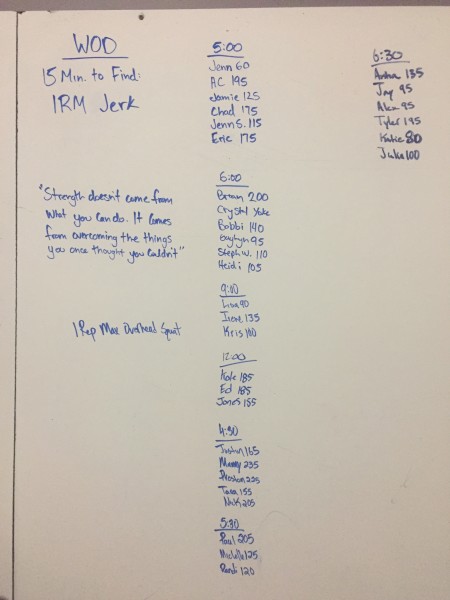 WOD
15 Min. to Find:
1RM Jerk
"Strength doesn't come from
What you can do. It Comes
from overcoming the things
you once thought you Couldn't"
1 Rep Max Overhead Squat
5:00
Jenn 60
AC 195
Jamie 125
Chad 175
Jenn S. 115
Eric 175
6:00
Brian 200
Crystal
Bobbi 140
95
Steph W. 110
Heidi 105
9:00
Lisa 90
Irene 135
Kris 100
12:00
Kale 185
Ed 185
Jones 155
4:30
Justin 155
Manny 235
Preston 225
Tara 155
Nick 205
5:30
Paul 205
Michelle 125
120
6:30
135
Jay 95
Alex 95
Tyler 195
Katie 80
Jules 100